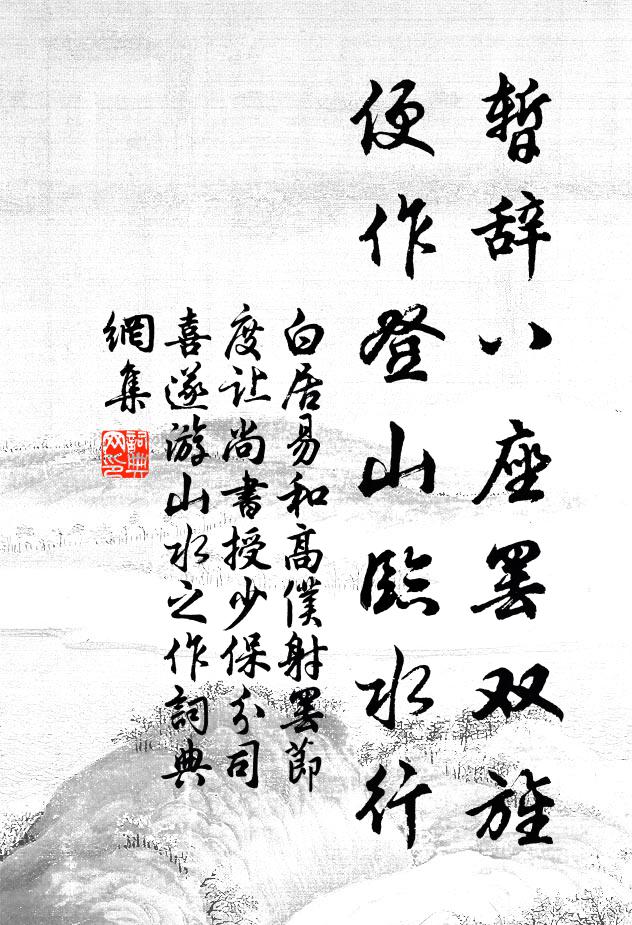 暫辞八座罢双旌
便作登山臨水行
白居易和高僕射罢節
度让尚書授少保分司
喜遂游山水之作詞典
網集
詞典網印